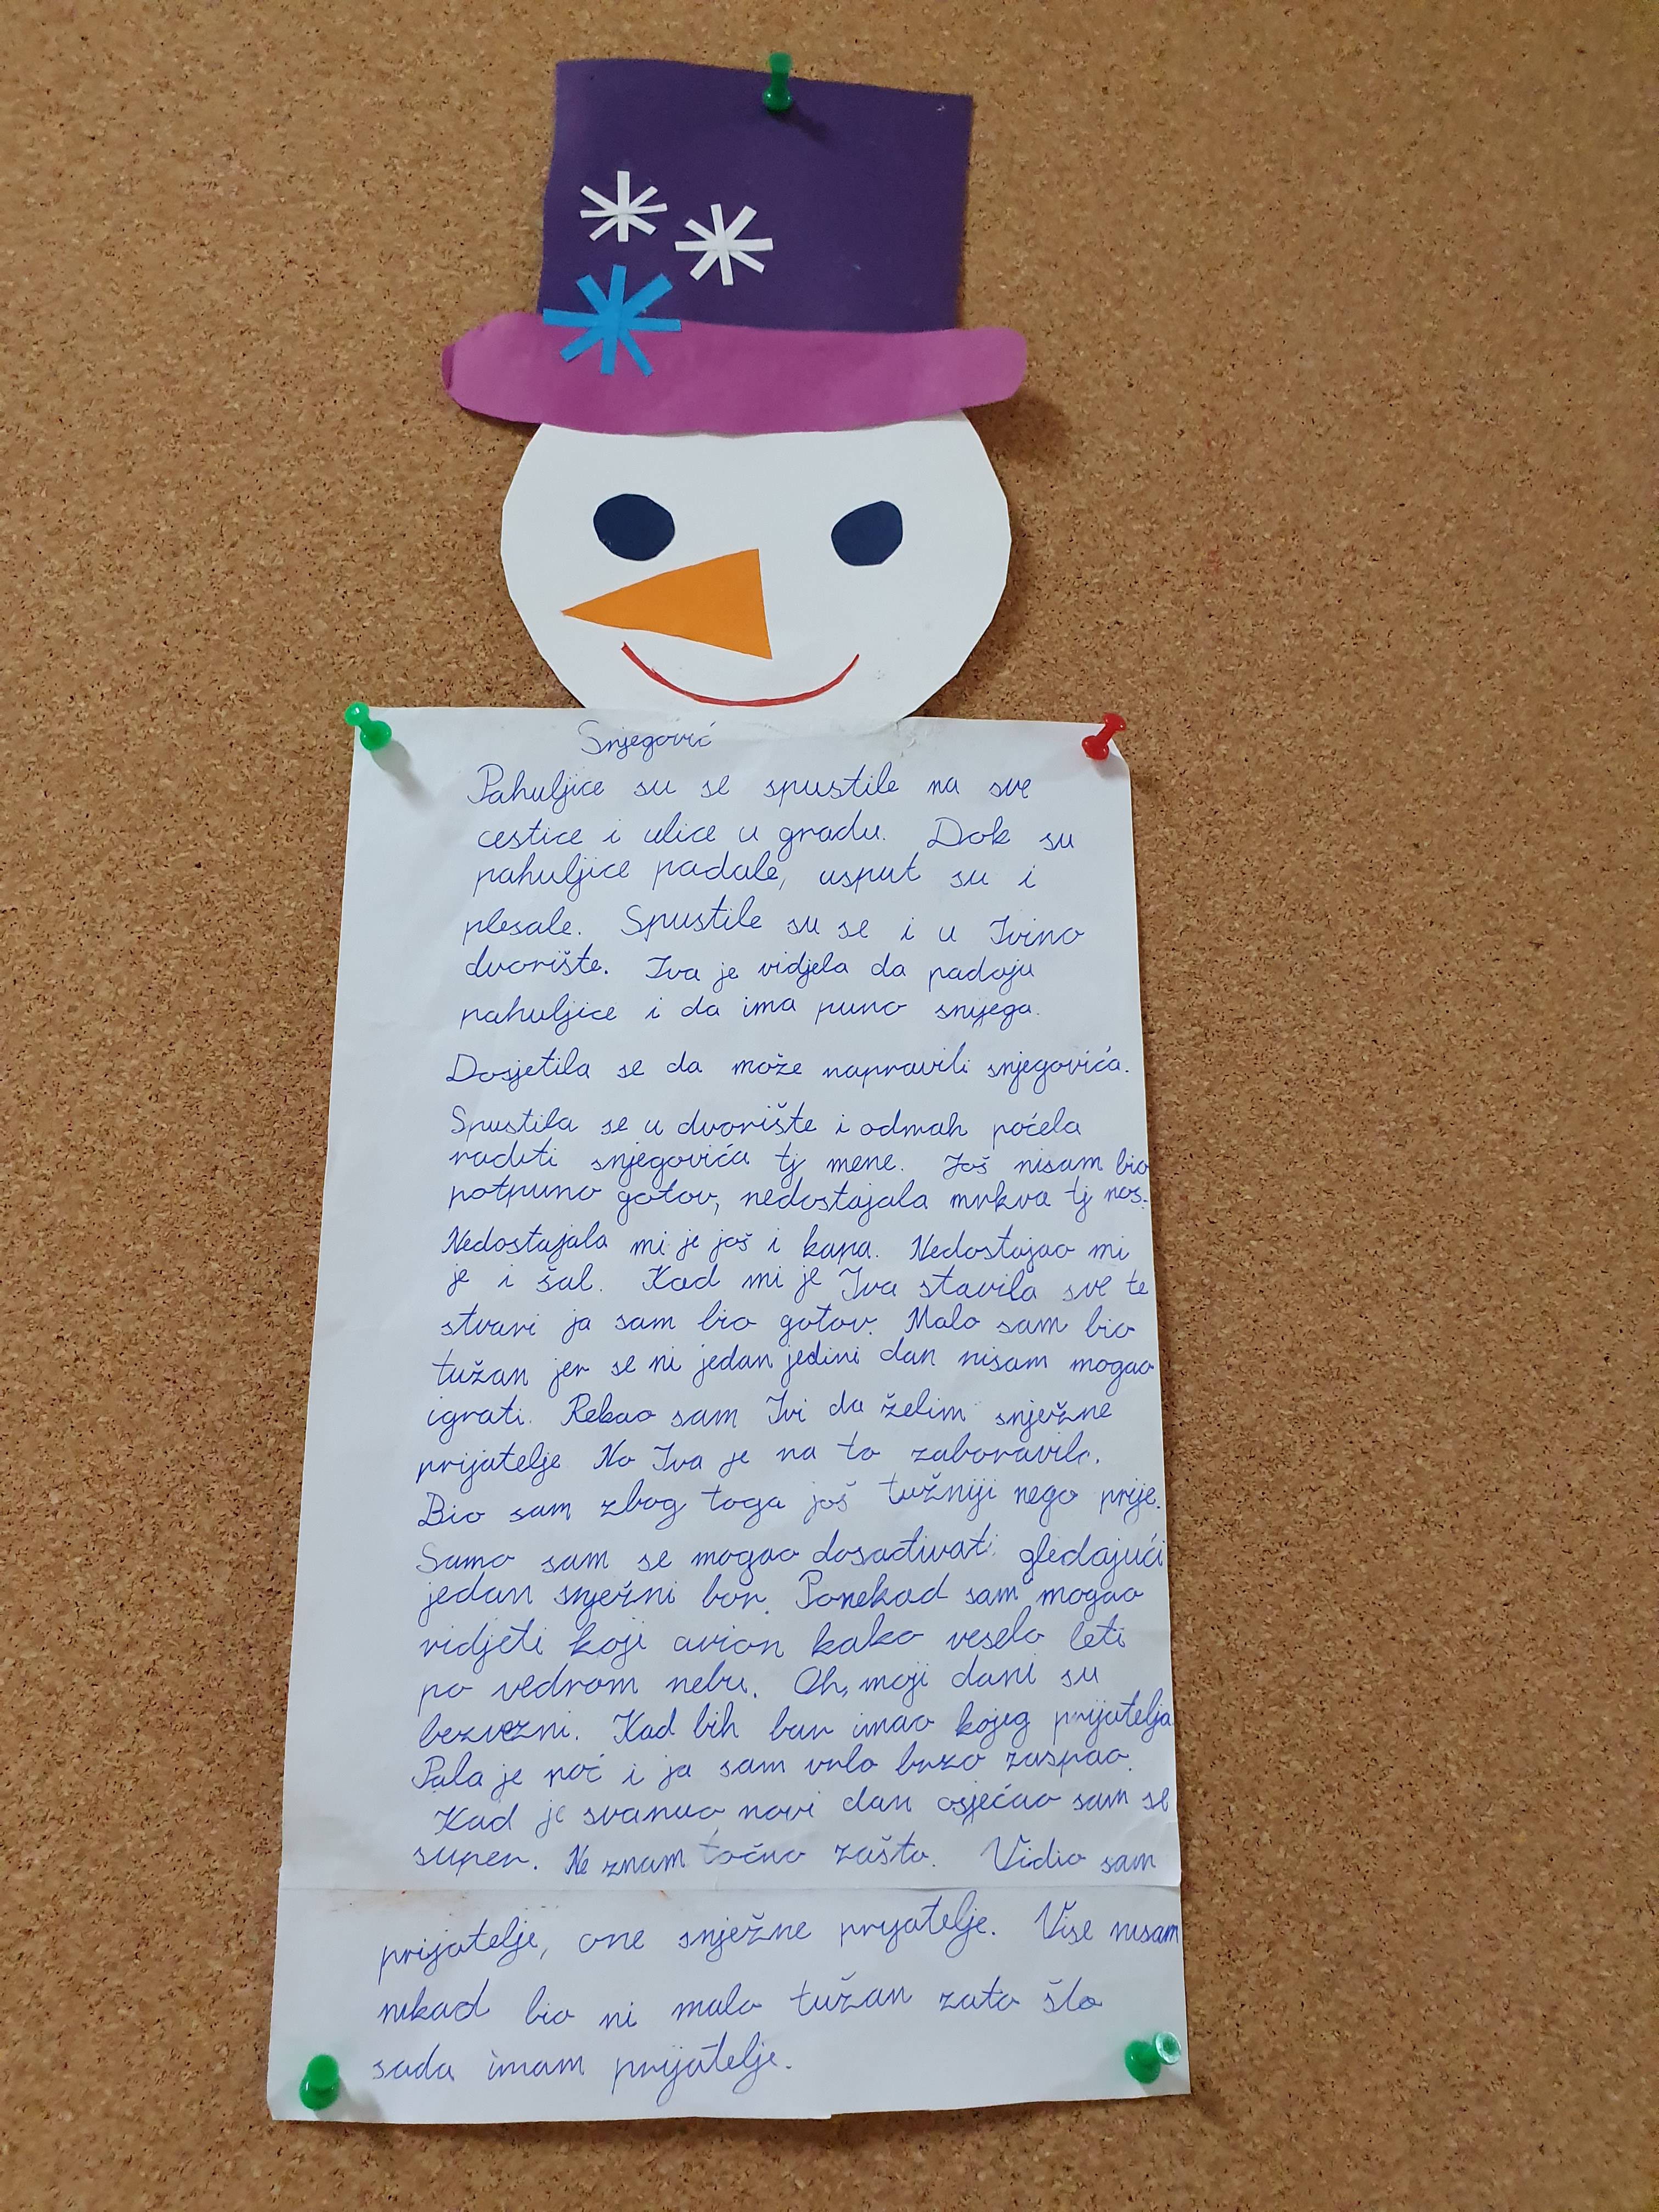 Snjegović
Pahuljice su se spustile na sve
cestice i ulice u gradu. Dok su
pahuljice padale, usput su i
plesale. Spustile su se i u Ivino
dvorište. Iva je vidjela da padaju
pahuljice i da ima puno snijega.
Dosjetila se da može napraviti snjegovića.
Spustila se u dvorište i odmah poćela
raditi snjegovića tj mene. Još nisam bio
potpuno gotov, nedostajala mrkva tj nos.
Nedostajala mi je još i kapa. Nedostajao mi
je i šal. Kad mi je Iva stavila sve te
stvari ja sam bio gotov. Malo sam bio
tužan jer se ni jedan jedini dan nisam mogao
igrati. Rekao sam Ivi da želim snježne
prijatelje No Iva je na to zaboravila.
Bio sam zbog toga još tužniji nego prije.
Samo sam se mogao dosađivati gledajući
jedan snježni bor. Ponekad sam mogao
vidjeti koji avion kako veselo leti
po vedrom nebu. Oh, moji dani su
bezvezni. Kad bih bar imao kojeg prijatelja
Pala je noć i ja sam vrlo brzo zaspao.
Kad je svanuo novi dan osjećao sam se
super. Ne znam točno zašto. Vidio sam
prijatelje, one snježne prijatelje. Više nisam
nikad bio ni malo tužan zato što
sada imam prijatelje.